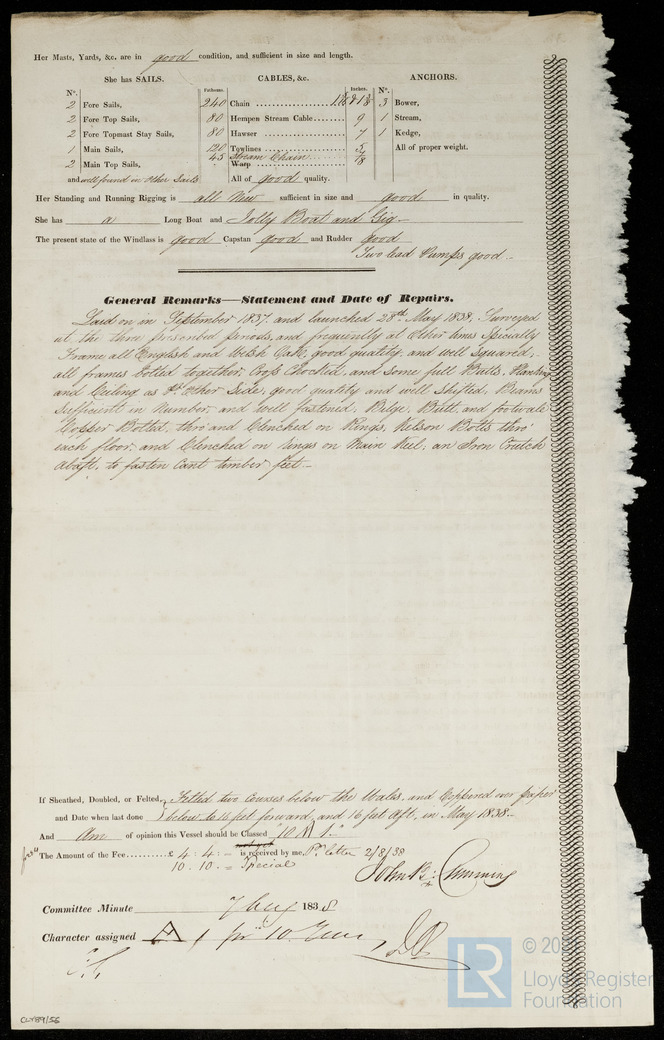 Her Masts, Yards, &c. are in good condition, and sufficient in size and length.
She has SAILS. CABLES, &c. ANCHORS.
Nº. Fathoms. Inches. Nº.
2 Fore Sails, 240 Chain 3 Bower,
2 Fore Top Sails, 80 Hempen Stream Cable 9 1 Stream,
2 Fore Topmast Stay Sails, 80 Hawser 7 1 Kedge,
1 Main Sails, 120 Towlines 5 All of proper weight.
2 Main Top Sails, 45 Stream Chain 7/8
Warp
and well found in Other Sails All of good quality.
Her Standing and Running Rigging is all New sufficient in size and good in quality.
She has a Long Boat and Jolly Boat and Gig
The present state of the Windlass is good Capstan good and Rudder good
Two lead Pumps good
General Remarks—Statement and Date of Repairs.
Laid on in September 1837, and launched 28th May 1838, Surveyed
at the three prescribed periods, and frequently at Other times Specially
Frame all English and Welsh Oak, good quality, and well squared,
all frames bolted together, Cross Chocked, and some full Butts, Planking
and Ceiling as Pr Other Side, good quality and well shifted, Beams
sufficient in number, and well fastened, Bilge, Butt, and footwale
Copper Bolted, thro' and Clenched on Rings, Kelson Bolts thro'
each floor, and Clenched on rings on Main Keel, an Iron Crutch
abaft, to fasten Cant timber feet
If Sheathed, Doubled, or Felted, Felted two Courses below the Wales, and Coppered over paper
and Date when last done below to 14 feet forward, and 16 feet Aft, in May 1838
And Am of opinion this Vessel should be Classed "10 A 1"
not yet
The Amount of the Fee £ 4 : 4 : – is received by me, Pr letter 2/8/38
10 . 10 . – Special
John Cummins
Committee Minute 7 Aug 1838
Character assigned A 1 for 10 Years
CLY89/56
LR © 20
Lloyd's Register
Foundation